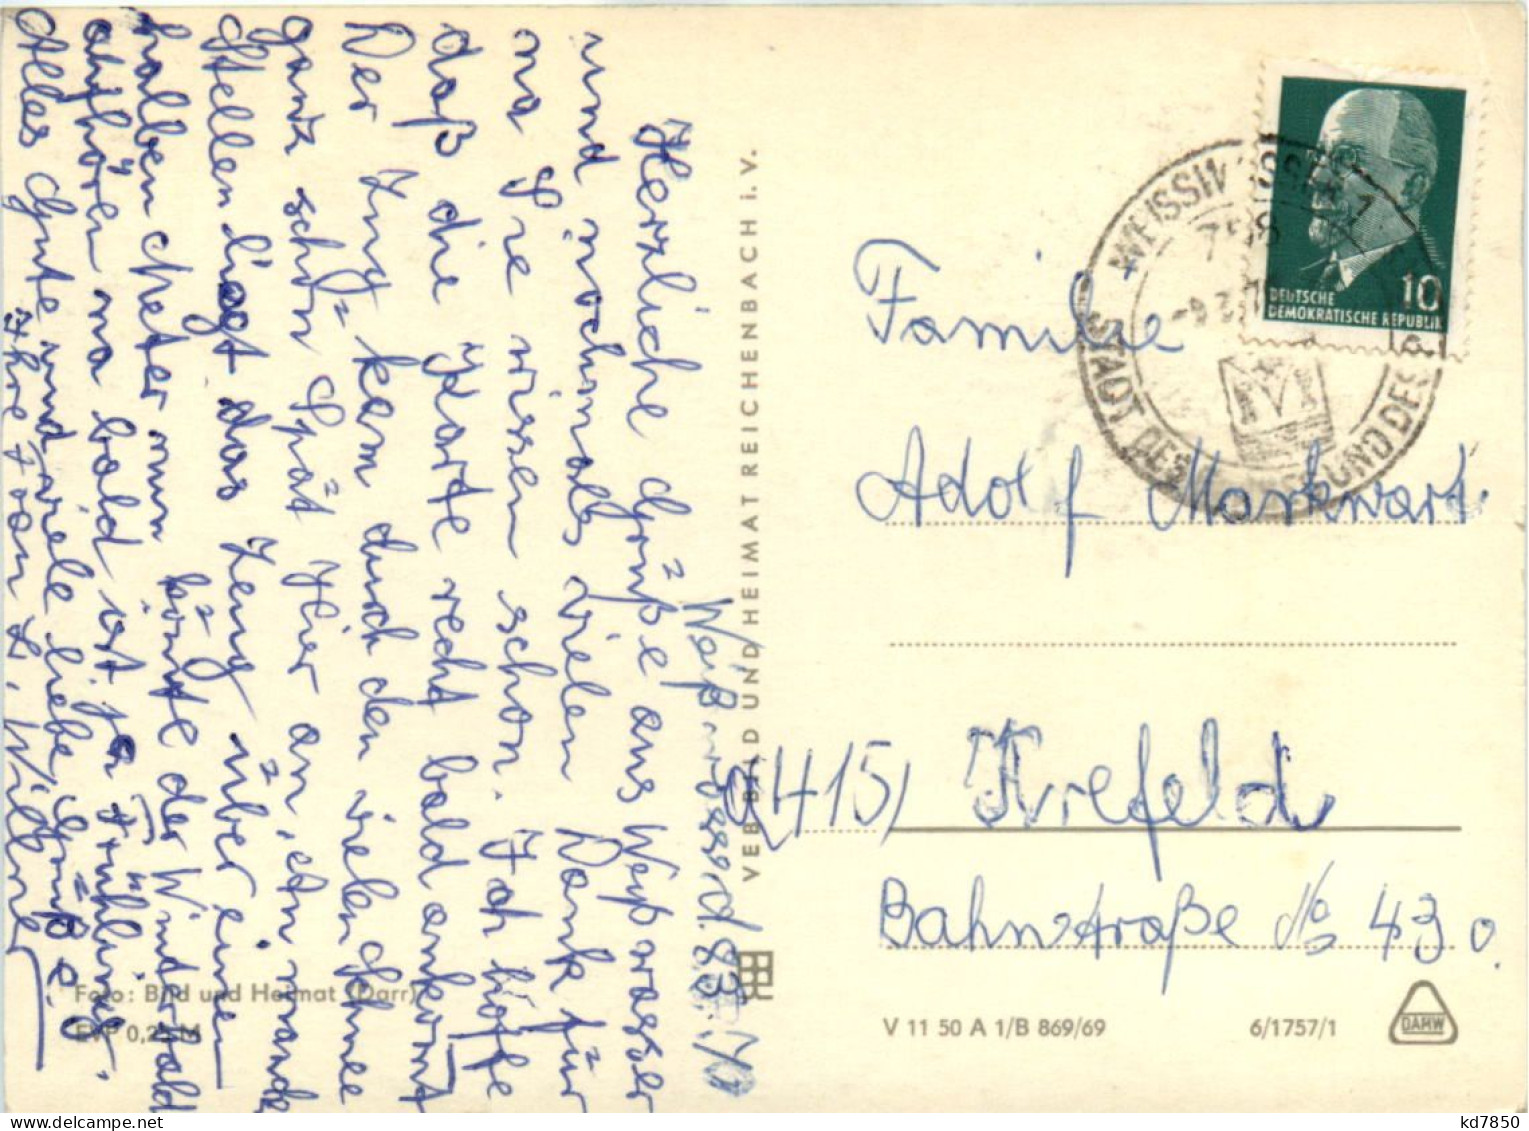 Weißwasser d. 8.3.70
Herzliche Grüße aus Weißwasser
und nochmals vielen Dank für
na Sie wissen schon. Ich hoffe
daß die Karte recht bald ankommt
Der Zug kam durch den vielen Schnee
ganz schön Spät hier an, an manchen
Stellen liegt das Zeug über einen
halben Meter nun könnte der Winter bald
aufhören na bald ist ja Frühling.
Alles Gute und viele liebe Grüße
Ihre Fam
VEB BILD UND HEIMAT REICHENBACH i. V.
Foto: Bild und Heimat (Darr)
EVP 0,25 M
WEISSWASSER 1
758
STADT DES UND DES
10
DEUTSCHE
DEMOKRATISCHE REPUBLIK
Familie
Adolf Markwart
(415) Krefeld
Bahnstraße No 430.
V 11 50 A 1/B 869/69
6/1757/1
DAMW
kd7850